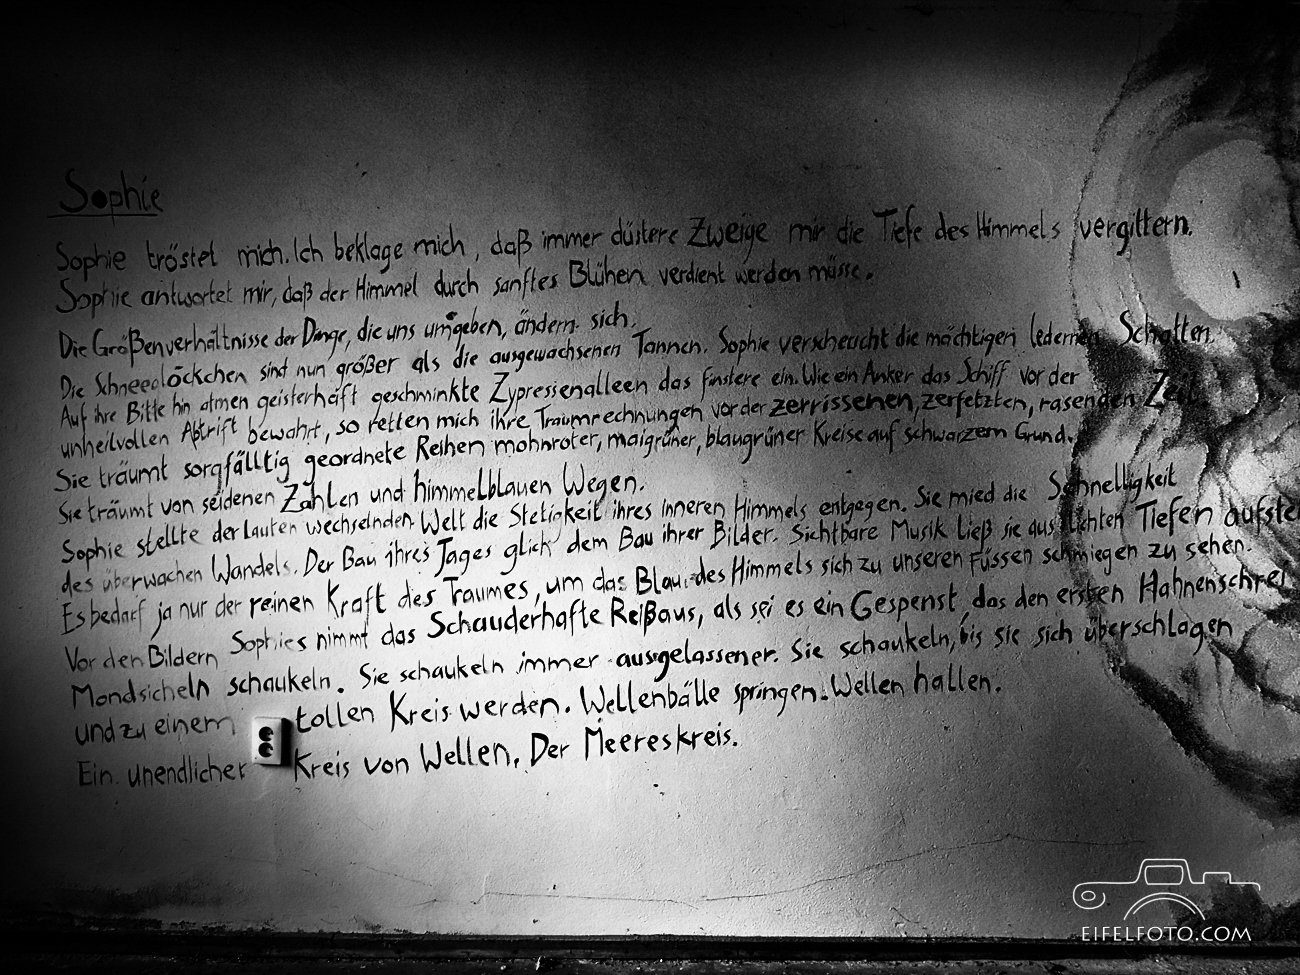 Sophie
Sophie tröstet mich. Ich beklage mich, daß immer düstere Zweige mir die Tiefe des Himmels vergittern.
Sophie antwortet mir, daß der Himmel durch sanftes Blühen verdient werden müsse.
Die Größenverhältnisse der Dinge, die uns umgeben, ändern sich.
Die Schneeglöckchen sind nun größer als die ausgewachsenen Tannen. Sophie verscheucht die mächtigen ledernen Schatten.
Auf ihre Bitte hin atmen geisterhaft geschminkte Zypressenalleen das finstere ein. Wie ein Anker das Schiff vor der
unheilvollen Abtrift bewahrt, so retten mich ihre Traumrechnungen vor der zerrissenen, zerfetzten, rasenden Zeit.
Sie träumt sorgfälltig geordnete Reihen mohnroter, maigrüner, blaugrüner Kreise auf schwarzem Grund.
Sie träumt von seidenen Zahlen und himmelblauen Wegen.
Sophie stellte der lauten wechselnden Welt die Stetigkeit ihres inneren Himmels entgegen. Sie mied die Schnelligkeit
des überwachen Wandels. Der Bau ihres Tages glich dem Bau ihrer Bilder. Sichtbare Musik ließ sie aus lichten Tiefen aufste
Es bedarf ja nur der reinen Kraft des Traumes, um das Blau des Himmels sich zu unseren Füssen schmiegen zu sehen.
Vor den Bildern Sophies nimmt das Schauderhafte Reißaus, als sei es ein Gespenst, das den ersten Hahnenschrei
Mondsicheln schaukeln. Sie schaukeln immer ausgelassener. Sie schaukeln, bis sie sich überschlagen
und zu einem tollen Kreis werden. Wellenbälle springen. Wellen hallen.
Ein unendlicher Kreis von Wellen. Der Meereskreis.
EIFELFOTO.COM